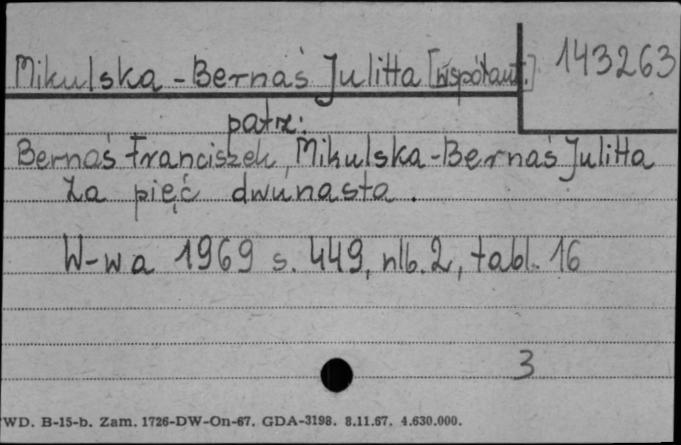 Mikulska-Bernaś Julitta [współaut.] 143263
patrz:
Bernaś Franciszek, Mikulska-Bernaś Julitta
Za pięć dwunasta.
W-wa 1969 s. 449, nlb. 2, tabl. 16
3
WD. B-15-b. Zam. 1726-DW-On-67. GDA-3198. 8.11.67. 4.630.000.